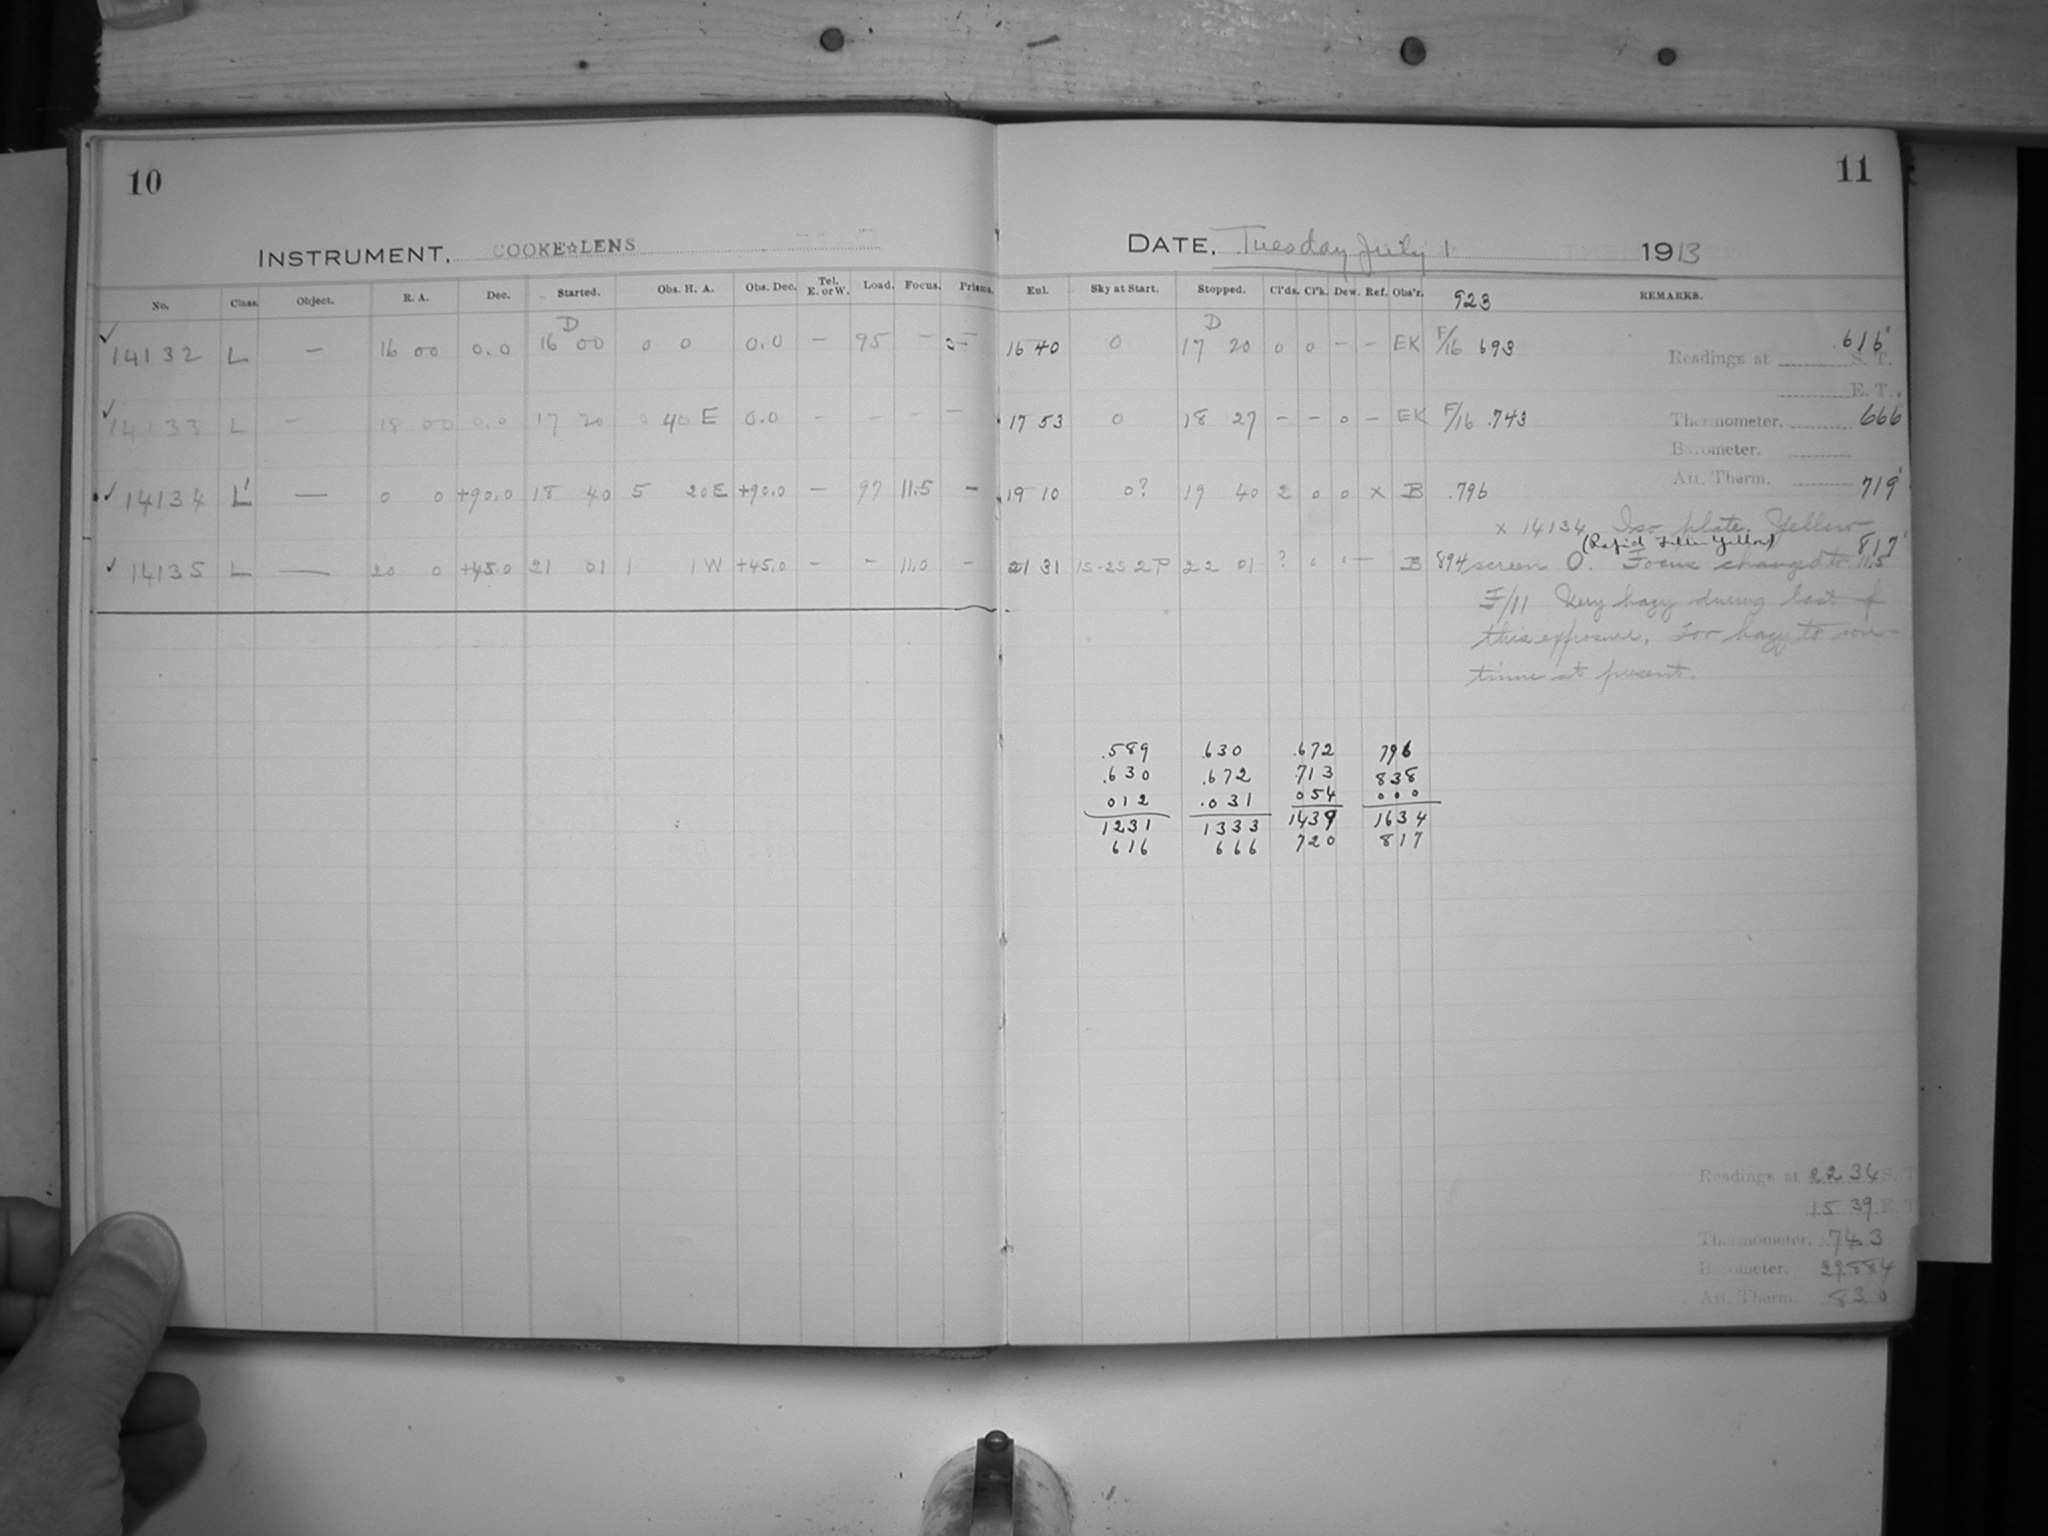 10
INSTRUMENT. COOKE☆LENS
No. Class. Object. R. A. Dec. Started. Obs. H. A. Obs. Dec. Tel. E. or W. Load. Focus. Prisms.
✓ 14132 L — 16 00 0.0 D 16 00 0 0 0.0 — 95 —
✓ 14133 L — 18 00 0.0 17 20 0 40 E 0.0 — — — —
✓ 14134 L' — 0 0 +90.0 18 40 5 20 E +90.0 — 97 11.5 —
✓ 14135 L — 20 0 +45.0 21 01 1 1 W +45.0 — — 11.0 —
11
DATE, Tuesday July 1 1913
Enl. Sky at Start. Stopped. Cl'ds. Cl'k. Dew. Ref. Obs'r. 923 REMARKS.
16 40 0 D 17 20 0 0 — — EK F/16 693 .616
Readings at S. T.
E. T.
17 53 0 18 27 — — 0 — EK F/16 .743 Thermometer. 666
Barometer.
19 10 0? 19 40 2 0 0 x B .796 Att. Therm. 719
x 14134 Iso plate. Yellow
(Rapid Filter Yellow) 817
21 31 1S-2S 2P 22 01 ? B 894 screen O. Focus changed to 11.5
F/11 Very hazy during last of
this exposure. Too hazy to con-
tinue at present.
.589 .630 .672 796
.630 .672 713 838
012 .031 054 000
1231 1333 1439 1634
616 666 720 817
Readings at 22 34 S. T.
15 39 E. T.
Thermometer. 74.3
Barometer. 29.884
Att. Therm. 83.0